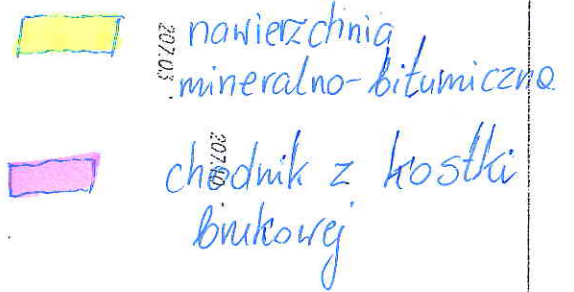 nawierzchnia
207.03
mineralno-bitumiczna
207.00
chodnik z kostki
brukowej